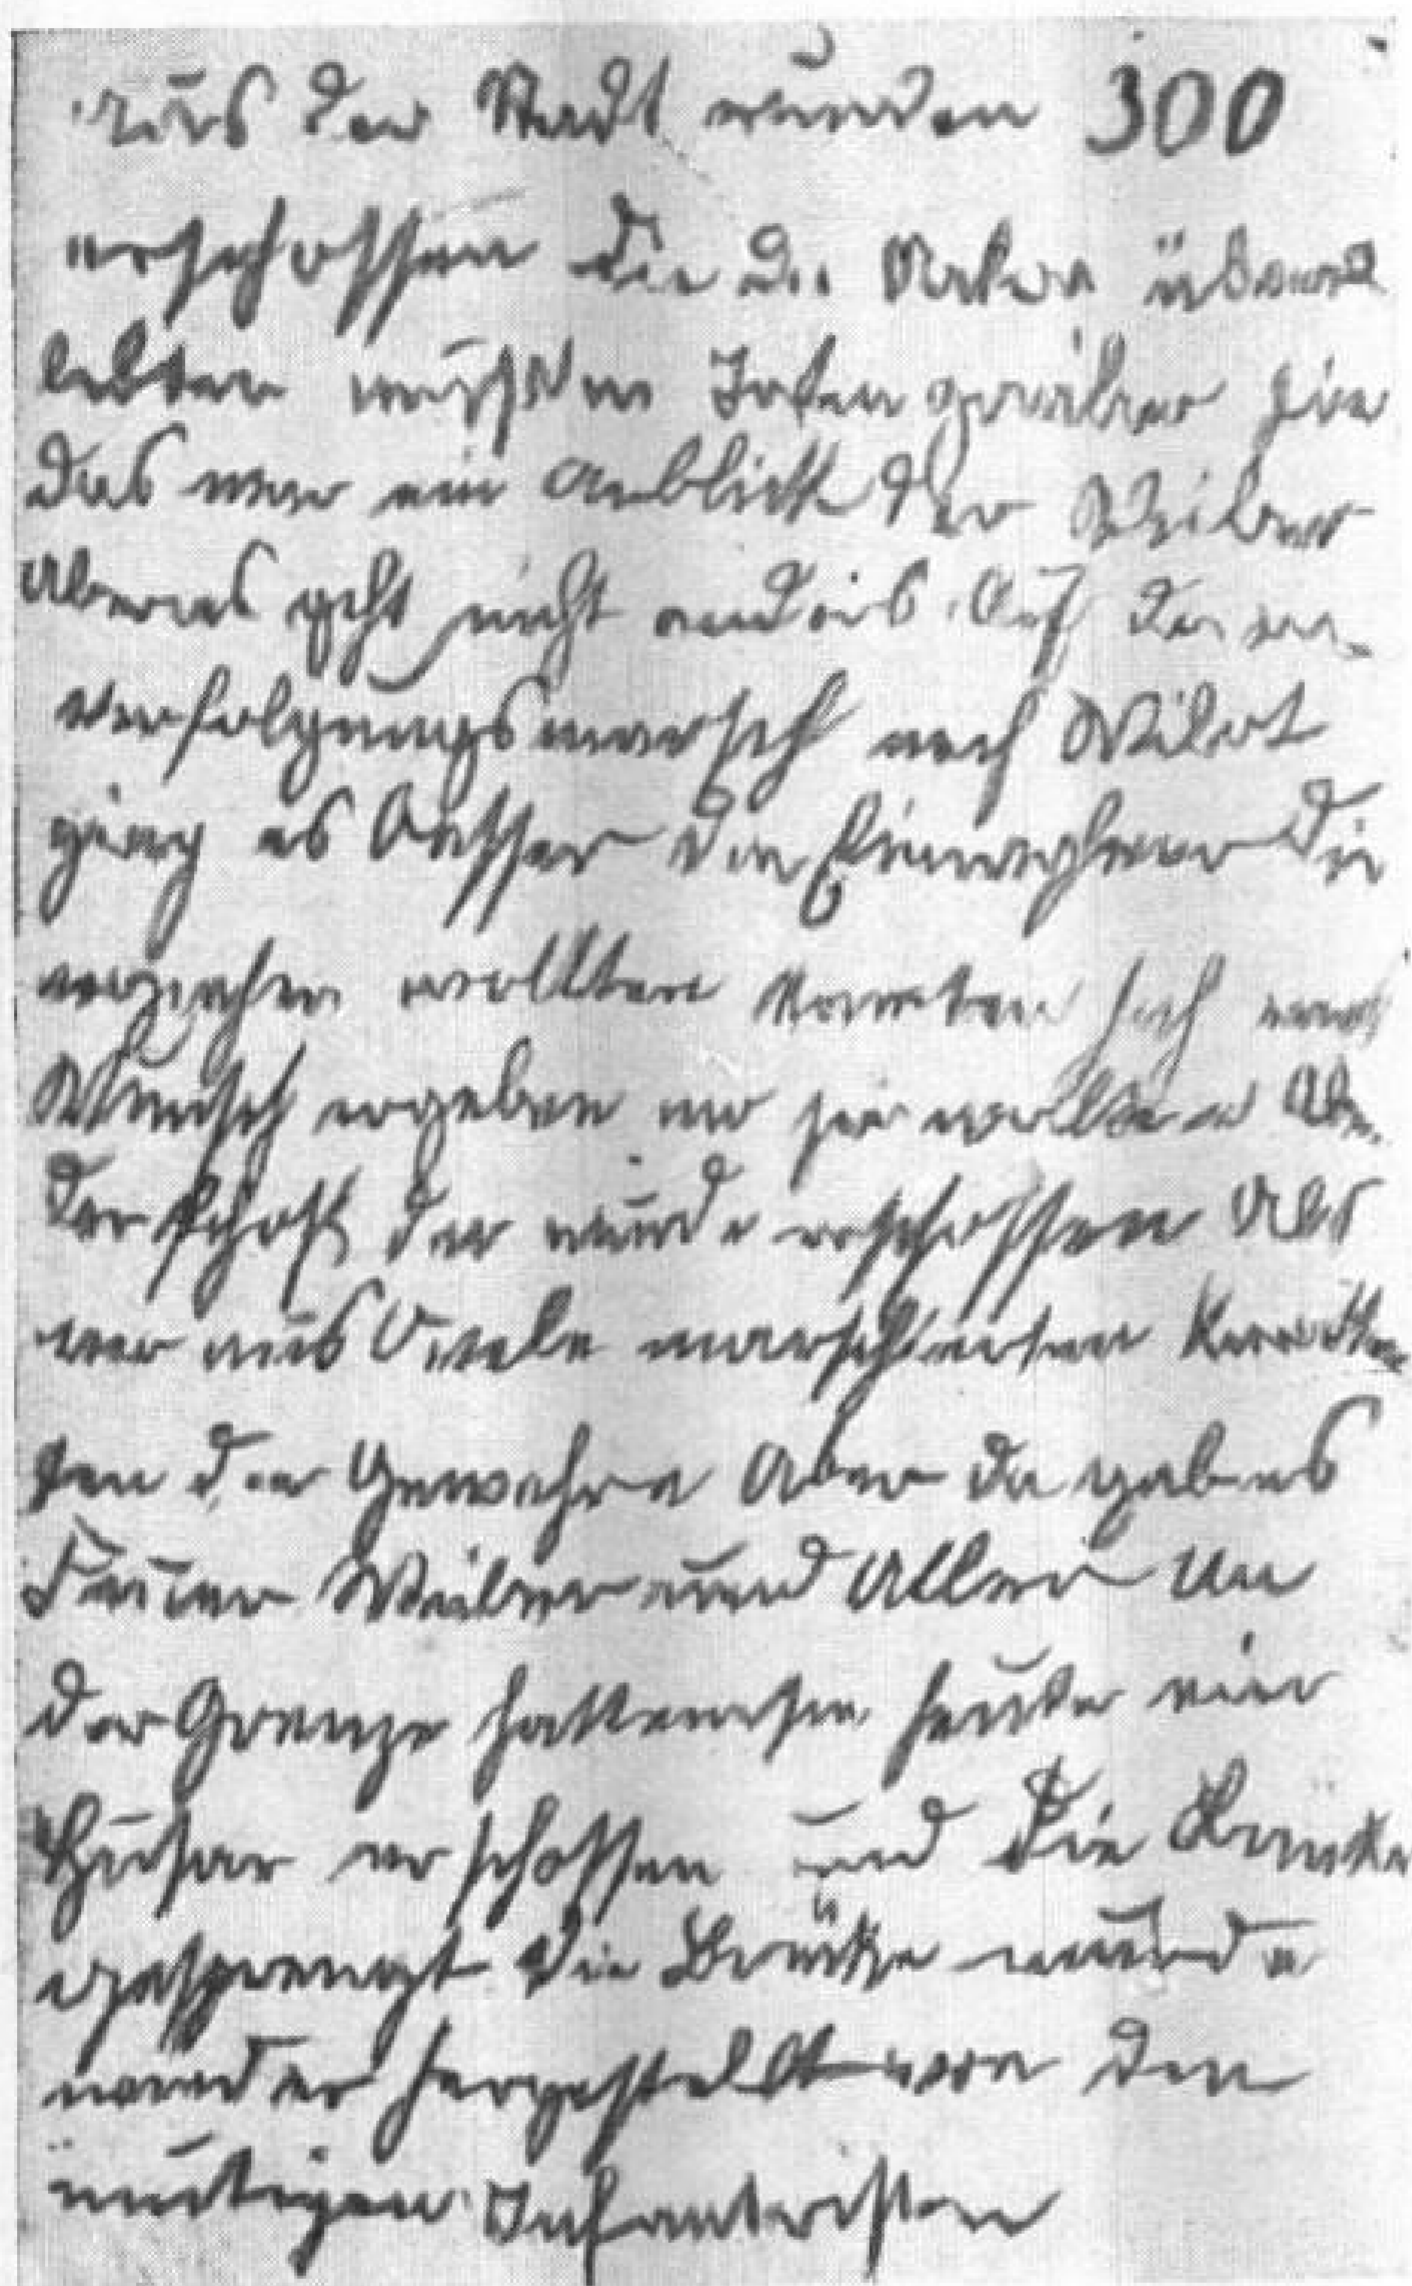 Aus der Stadt wurden 300
erschossen die die Salve überr
lebten mußten Totengräber sein
das war ein Anblick der Weiber
Aber es geht nicht anders. Auf dem
verfolgungsmarsch nach Wilot
ging es besser die Einwohner die
verziehen wollten konnten sich nach
Wunsch ergeben wo sie wollten Aber
der schoß der wurde erschossen Als
wir aus Owele marschierten knatter
ten die Gewehre Aber da gab es
Feuer Weiber und Alles An
der Grenze hatten sie heute ein
Husar erschossen und die Brücke
gesprengt Die Brücke wurde
wieder hergestellt von den
mutigen Infantristen